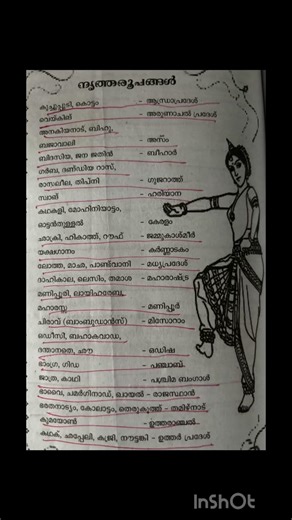 നൃത്തരൂപങ്ങൾ
കുച്ചുപ്പുടി, കൊട്ടം - ആന്ധ്രാപ്രദേശ്
വെയ്കിങ് - അരുണാചൽ പ്രദേശ്
അനകിയനാട്, ബിഹു,
ബജാവാലി - അസ്സം
ബിദസിയ, ജന ജതിൻ - ബീഹാർ
ഗർബ, ദണ്ഡിയ റാസ്,
രാസലീല, തിപ്നി - ഗുജറാത്ത്
സ്വാങ് - ഹരിയാന
കഥകളി, മോഹിനിയാട്ടം,
ഓട്ടൻതുള്ളൽ - കേരളം
ഛാക്രി, ഹികാത്ത്, റൗഫ് - ജമ്മുകാശ്മീർ
യക്ഷഗാനം - കർണ്ണാടകം
ലോത്ത, മാഛ, പാണ്ട്വാനി - മധ്യപ്രദേശ്
ദാഹികാല, ലെസിം, തമാശ - മഹാരാഷ്ട്ര
മണിപ്പൂരി, ലായിഹരേബ,
മഹാരസ്സ - മണിപ്പൂർ
ചിരാവ് (ബാംബുഡാൻസ്) - മിസോറാം
ഒഡീസി, ബഹാകവാഡ,
ദന്താനതെ, ഛൗ - ഒഡിഷ
ഭാംഗ്ര, ഗിഡ - പഞ്ചാബ്
ജാത്ര, കാഥി - പശ്ചിമ ബംഗാൾ
ഭാവൈ, ചമർഗിനാഡ്, ഖായൽ - രാജസ്ഥാൻ
ഭരതനാട്യം, കോലാട്ടം, തെരുക്കൂത്ത് - തമിഴ്നാട്
കുമയോൺ - ഉത്തരാഞ്ചൽ
കഥക്, ഛപ്പേലി, കജ്രി, നൗട്ടങ്കി - ഉത്തർ പ്രദേശ്
InShOt